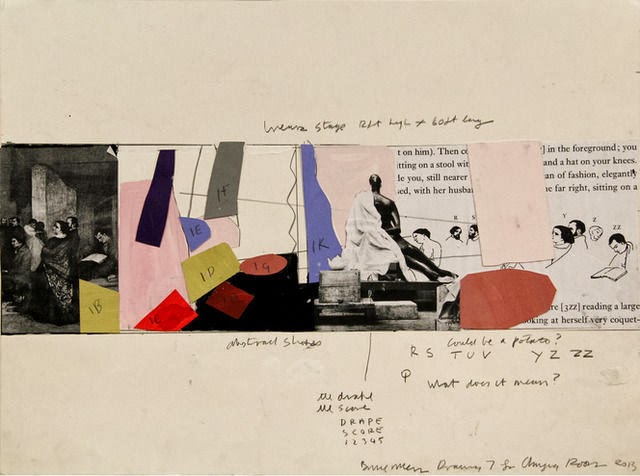 stage 12ft high x 60ft long
t on him). Then co
] in the foreground; you
itting on a stool wit
and a hat on your knees.
le you, still nearer
an of fashion, elegantly
sed, with her husba
he far right, sitting on a
1F
R S
Y Z ZZ
1E
1K
1D
1G
1B
1C
re [3ZZ] reading a large
oking at herself very coquet-
abstract shapes
Could be a potato?
R S T U V Y Z ZZ
What does it mean?
the drape
the score
DRAPE
SCORE
1 2 3 4 5
Bruce McLean Drawing 7 for 2013